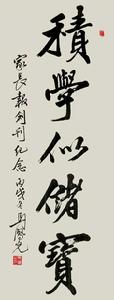 積學似儲寶
家長報創刊紀念
丙戌冬